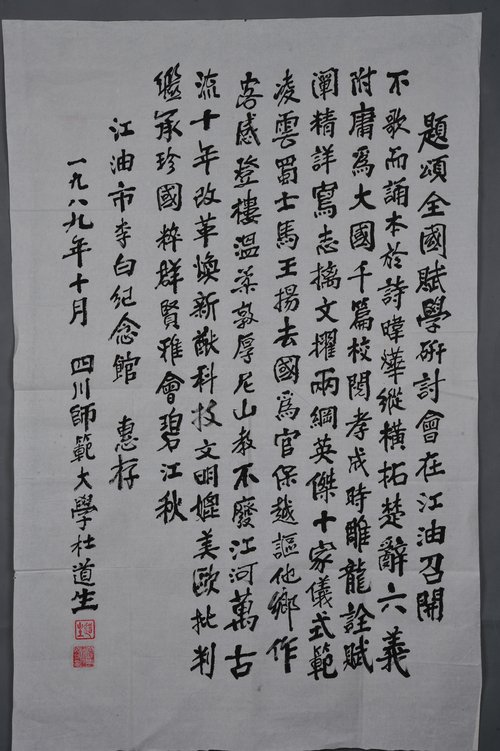 題頌全國賦學研討會在江油召開
不歌而誦本於詩暐燁縱橫拓楚辭六義
附庸為大國千篇校閱孝成時雕龍詮賦
闡精詳寫志摛文擢兩綱英傑十家儀式範
凌雲蜀士馬王揚去國為官保越謳他鄉作
客感登樓溫柔敦厚尼山教不廢江河萬古
流十年改革煥新猷科技文明媲美歐批判
繼承珍國粹群賢雅會碧江秋
江油市李白紀念館 惠存
一九八九年十月 四川師範大學杜道生